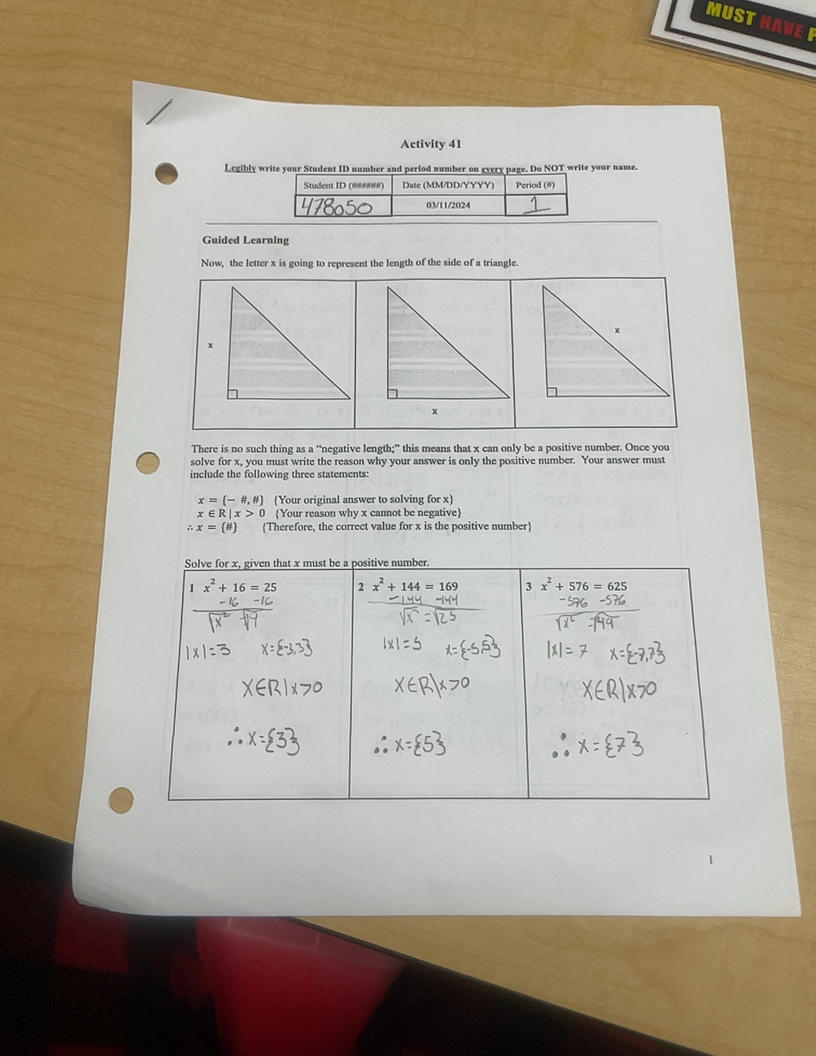 MUST HAVE P
Activity 41
Legibly write your Student ID number and period number on every page. Do NOT write your name.
Student ID (######) Date (MM/DD/YYYY) Period (#)
478050 03/11/2024 1
Guided Learning
Now, the letter x is going to represent the length of the side of a triangle.
x
x
x
There is no such thing as a “negative length;” this means that x can only be a positive number. Once you
solve for x, you must write the reason why your answer is only the positive number. Your answer must
include the following three statements:
x = {− #, #} {Your original answer to solving for x}
x ∈ R | x > 0 {Your reason why x cannot be negative}
∴ x = {#} {Therefore, the correct value for x is the positive number}
Solve for x, given that x must be a positive number.
1 x² + 16 = 25
-16 -16
√x² √9
|x|=3 x={-3,3}
x∈R|x>0
∴ x={3}
2 x² + 144 = 169
-144 -144
√x² = √25
|x|=5 x={-5,5}
x∈R|x>0
∴ x={5}
3 x² + 576 = 625
-576 -576
√x² = √49
|x|=7 x={-7,7}
x∈R|x>0
∴ x={7}
1